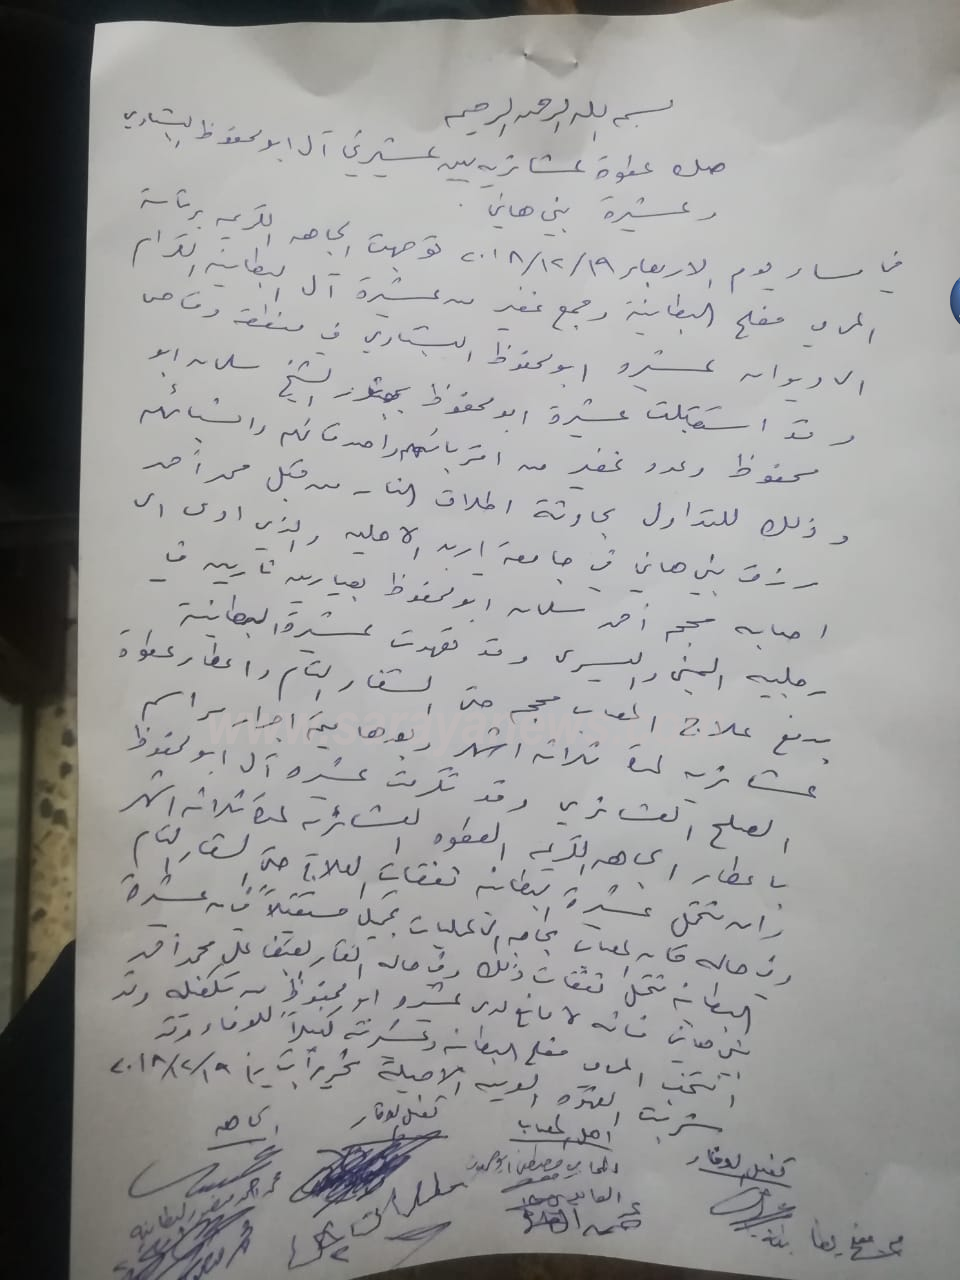 بسم الله الرحمن الرحيم
صك عطوة عشائريه بين عشيرتي آل ابو محفوظ البشتاوي
وعشيرة بني هاني
في مساء يوم الاربعاء ٢٠١٨/١٢/١٩ توجهت الجاهه الكريمه برئاسة
المحامي مفلح البطاينة وجمع غفير من عشيرة آل البطاينة الكرام
الى ديوان عشيره ابو محفوظ البشتاوي في منطقة وقاص
وقد استقبلت عشيرة ابو محفوظ بحضور الشيخ سلمان ابو
محفوظ وعدد غفير من اقربائهم واصدقائهم وانسبائهم
وذلك للتداول بحادثة اطلاق النار من قبل محمد أحمد
رزق بني هاني في جامعة اربد الاهليه والذي ادى الى
اصابه محجم أحمد سلمان ابو محفوظ بعيارين ناريين في
رجليه اليمنى واليسرى وقد تعهدت عشيرة البطاينة
بدفع علاج المصاب محجم حتى الشفاء التام واعطاء عطوة
عشائريه لمدة ثلاثة اشهر وبعدها يتم اجراء مراسم
الصلح العشائري وقد تكرمت عشيره آل ابو محفوظ
باعطاء الجاهه الكريمه العطوه العشائريه لمدة ثلاثة اشهر
وان تتحمل عشيرة البطاينه نفقات العلاج حتى الشفاء التام
وفي حاله كان المصاب بحاجه الى عمليات تجميل مستقبلاً فان عشيرة
البطاينه تتحمل نفقات ذلك وفي حاله القاء القبض على محمد أحمد
بني هاني فانه لا مانع لدى عشيره ابو محفوظ من تكفيله وقد
انتخب المحامي مفلح البطاينه وعشيرته كفيلاً للوفاء وقد
شربت القهوه العربيه الاصيلة تحريراً بتاريخ ٢٠١٨/١٢/١٩
الجاهه
كفيل الوفا
اهل المصاب
كفيل الدفا
محمد احمد منصور البطاينه
المحامي مصطفى ابو محفوظ